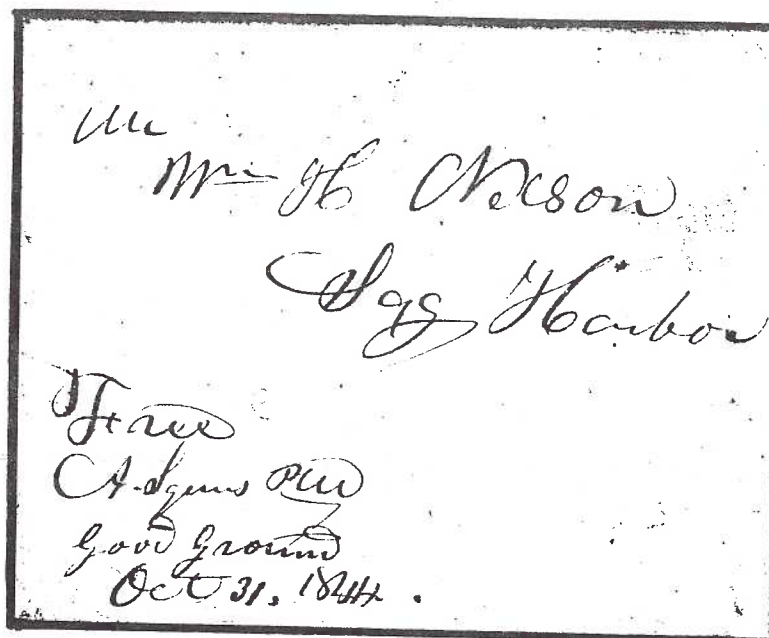 Mr
Wm H Nelson
Sag Harbor
Free
A. Squires PM
Good Ground
Oct 31. 1844.